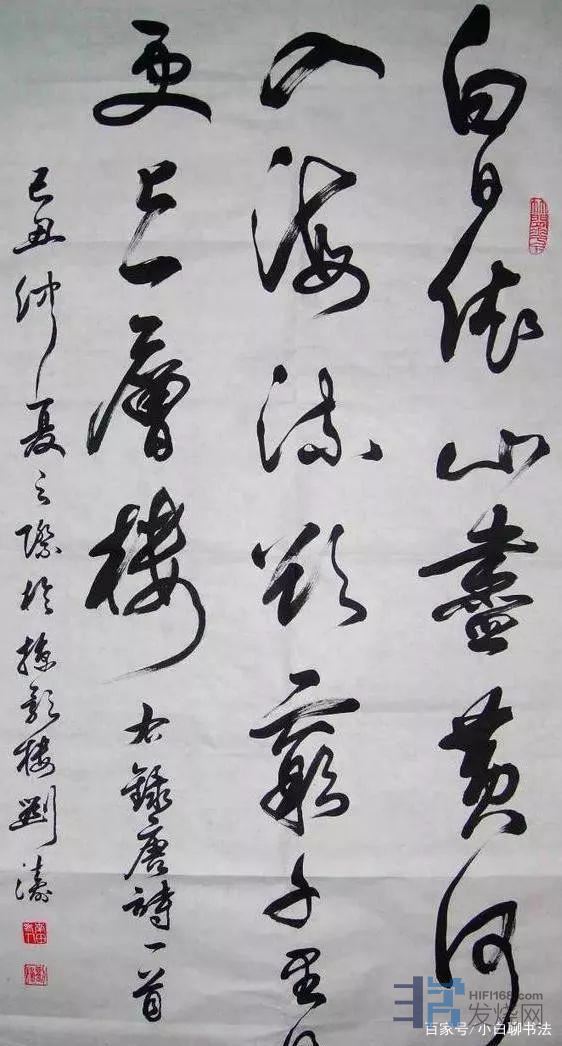 白日依山盡黄河
入海流欲窮千里目
更上一層樓 右録唐詩一首
己丑仲夏之際於樓劉濤
HIFI168.com
发烧网
百家号/小白聊书法